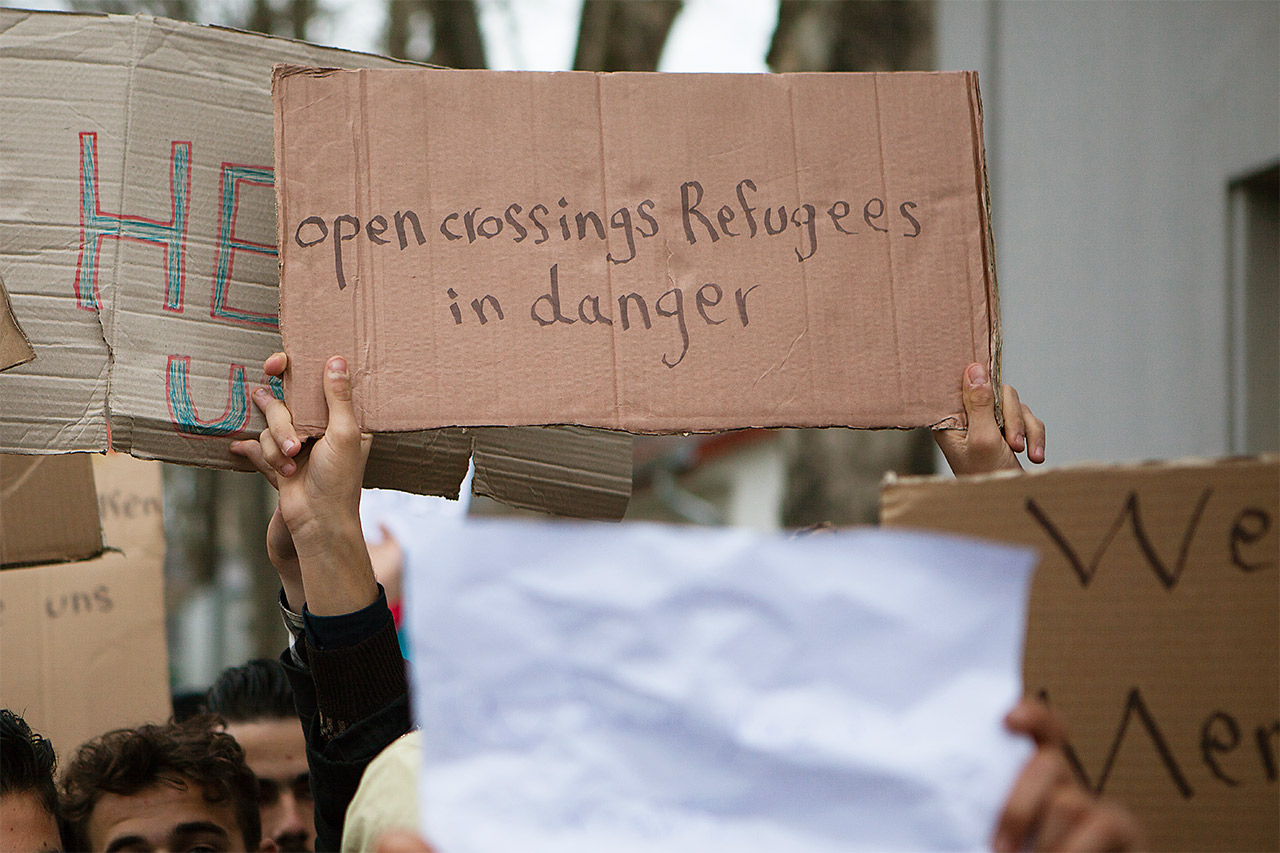 HE
U
open crossings Refugees
in danger
uns
We
Men